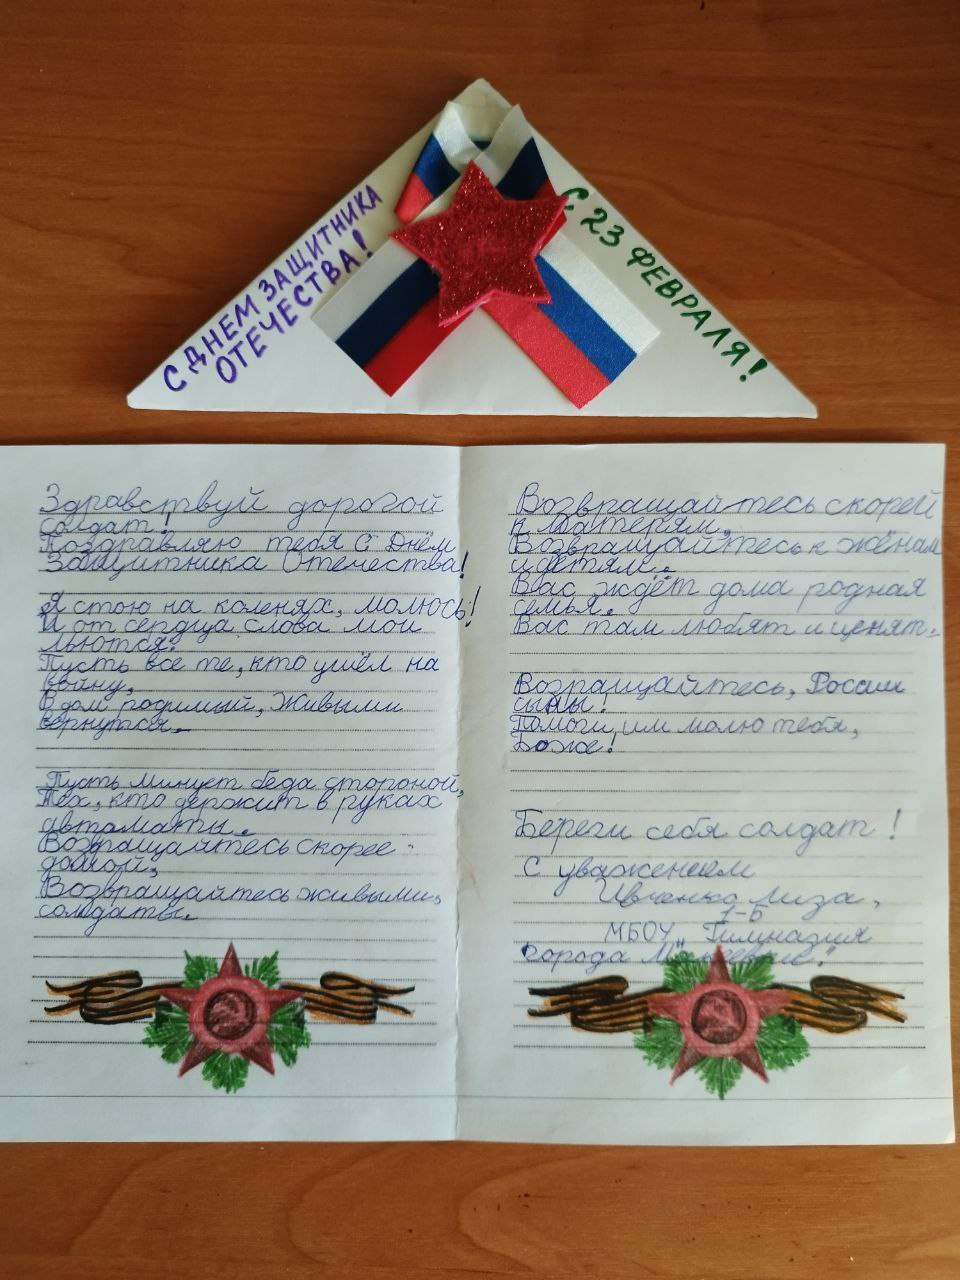 С ДНЕМ ЗАЩИТНИКА
ОТЕЧЕСТВА!
С 23 ФЕВРАЛЯ!
Здравствуй дорогой
солдат!
Поздравляю тебя с Днём
Защитника Отечества!
Я стою на коленях, молюсь!
И от сердца слова мои
льются.
Пусть все те, кто ушёл на
войну,
В дом родимый, Живыми
вернутся.
Пусть минует беда стороной,
Тех, кто держит в руках
автоматы.
Возвращайтесь скорее
домой,
Возвращайтесь живыми,
солдаты.
Возвращайтесь скорей
к матерям,
Возвращайтесь к жёнам
и детям.
Вас ждёт дома родная
семья.
Вас там любят и ценят.
Возращайтесь, России
сыны!
Помоги, им молю тебя,
Боже!
Береги себя солдат!
С уважением
Ивченко Лиза,
1-Б
МБОУ „Гимназия
города Макеевки."